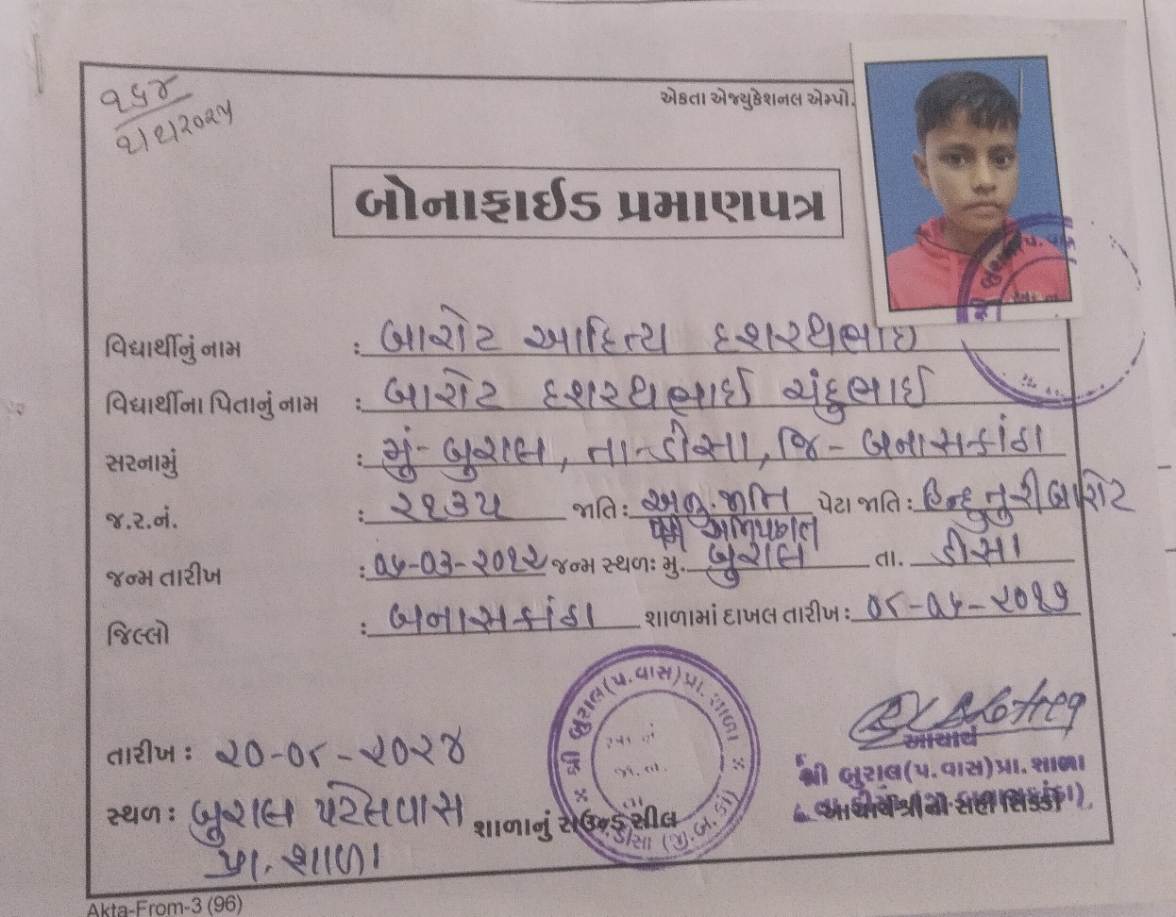 ૧૬૪
૨/૨/૨૦૨૫
એકતા એજ્યુકેશનલ એમ્પો.
બોનાફાઈડ પ્રમાણપત્ર
વિદ્યાર્થીનું નામ : બારોટ આદિત્ય દશરથભાઇ
વિદ્યાર્થીના પિતાનું નામ : બારોટ દશરથભાઈ ચંદુભાઈ
સરનામું : મું-બુરાલ, તા-ડીસા, જિ-બનાસકાંઠા
જ.ર.નં. : ૨૧૩૫ જાતિ : અનુ.જાતિ પેટા જાતિ : હિન્દુ તુરી બારોટ
જન્મ તારીખ : ૦૫-૦૩-૨૦૧૨ જન્મ સ્થળઃ મુ. બુરાલ તા. ડીસા
જિલ્લો : બનાસકાંઠા શાળામાં દાખલ તારીખ : ૦૮-૦૫-૨૦૧૭
તારીખ : ૨૦-૦૮-૨૦૨૪
સ્થળ : બુરાલ પટેલવાસ
પ્રા. શાળા
શાળાનું રાઉન્ડ સીલ
શ્રી બુરાલ(પ.વાસ)પ્રા. શાળા
ડીસા (જી.બ.કાં)
આચાર્ય
શ્રી બુરાલ(પ.વાસ)પ્રા. શાળા
આચાર્યશ્રીની સહી સિક્કો
Akta-From-3 (96)